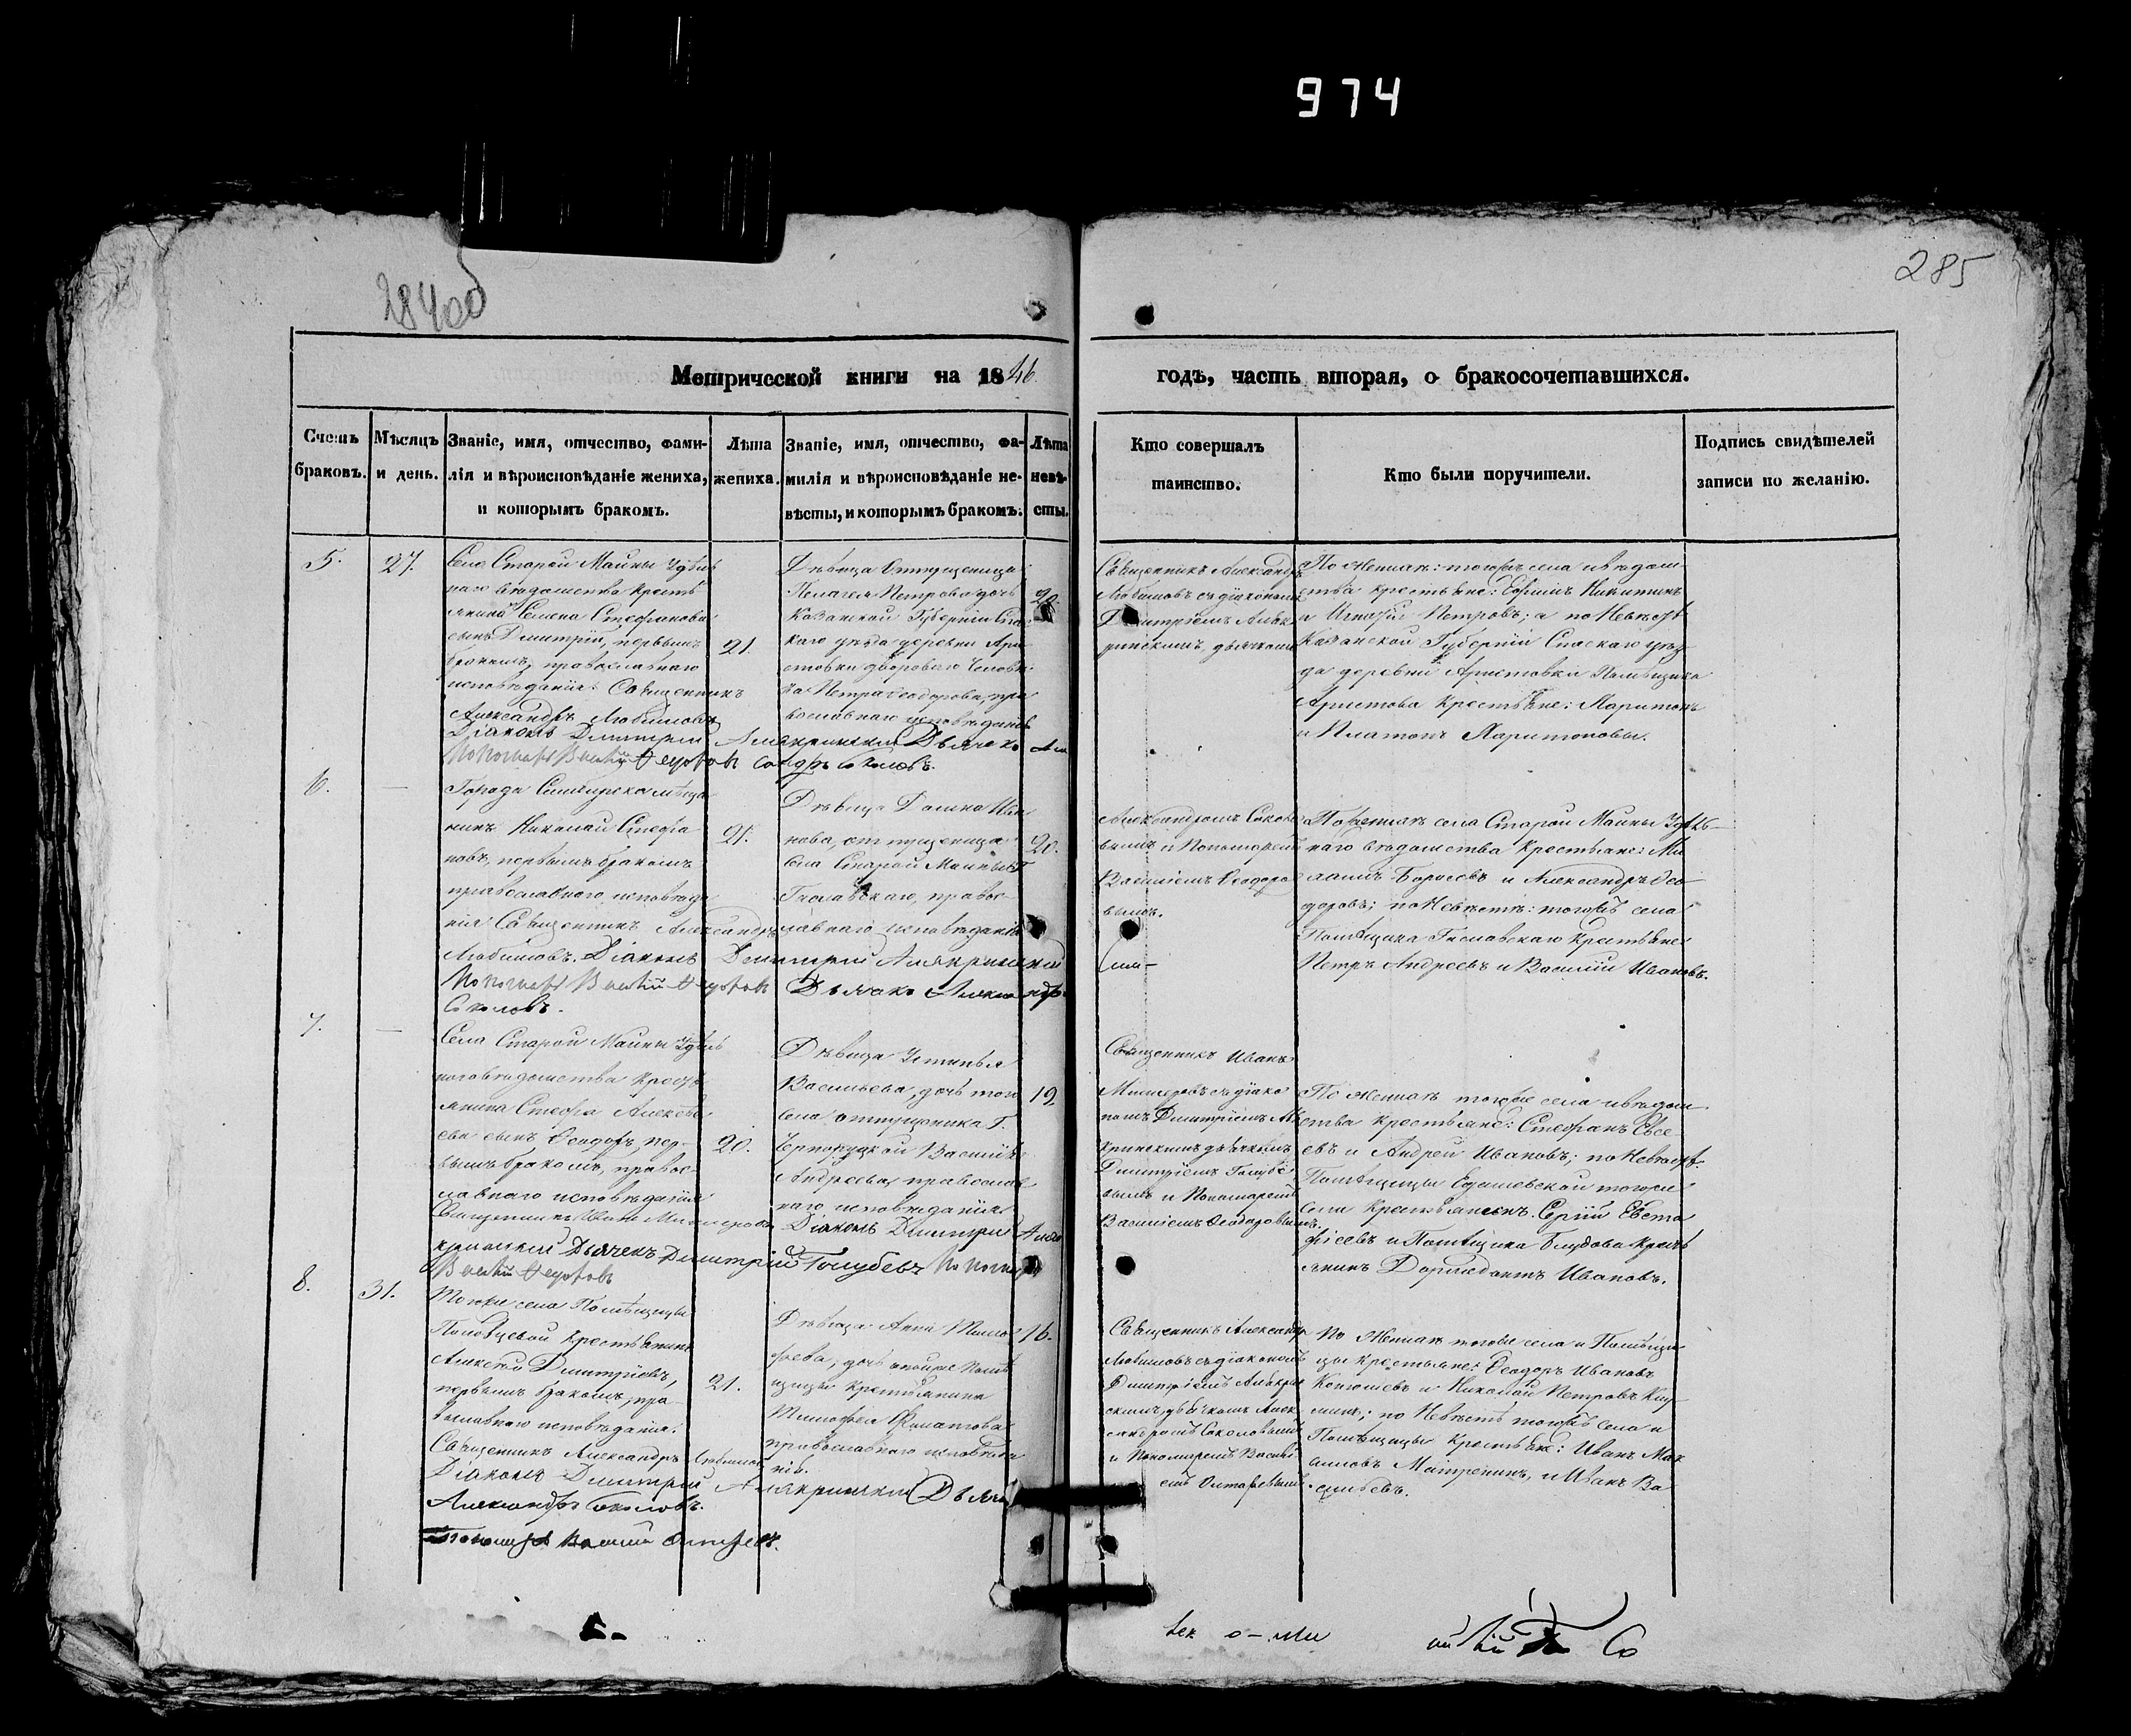 974
285
28400
Метрической книги на 1846.
годъ, часть вторая, о бракосочетавшихся.
Счетъ браковъ.
Мѣсяцъ и день.
Званіе, имя, отчество, фами-
лія и вѣроисповѣданіе жениха,
и которымъ бракомъ.
Лѣта
жениха.
Званіе, имя, отчество, фа-
милія и вѣроисповѣданіе не-
вѣсты, и которымъ бракомъ.
Лѣта
невѣ-
сты.
Кто совершалъ
таинство.
Кто были поручители.
Подпись свидѣтелей
записи по желанію.
5.
27.
Села Старой Майны Удѣль
наго вѣдомства Кресть
янина Семена Стефанова
сынъ Димитрій, первымъ
бракомъ, православнаго
исповѣданія. Священникъ
Александръ Любимовъ
Діаконъ Димитрій Алякринскій Дьячекъ Але
Пономарь Василій Ѳедоровъ ксандръ Соколовъ.
21.
Дѣвица Отпущеница
Пелагея Петрова дочь
Казанской Губерніи Спа
каго уѣзда деревни Ари
стовки двороваго Человѣ
ка Петра Ѳеодорова, пра
вославнаго исповѣданія
20.
Священникъ Александръ
Любимовъ съ діакономъ
Димитріемъ Аляк
ринскимъ, дьячкомъ
По Женихѣ: тогожъ села и вѣдом
ства крестьяне: Ефимъ Никитинъ
и Игнатій Петровъ; а по Невѣстѣ
Казанской Губерніи Спаскаго уѣз
да деревни Аристовки Помѣщика
Аристова Крестьяне: Харитонъ
и Платонъ Харитоновы.
6.
—
Города Симбирска мѣща
нинъ Николай Стефа
новъ, первымъ бракомъ
православнаго исповѣда
нія Священникъ Александръ
Любимовъ. Діаконъ Димитрій Алякринскій
Пономарь Василій Ѳедоровъ Дьячекъ Александръ
Соколовъ.
21.
Дѣвица Домна Ива
нова, отпущеница
села Старой Майны Г.
православнаго исповѣданія
20.
Александромъ Соколо
вымъ и Пономаремъ
Василіемъ Ѳеодоро
вымъ.
По Женихѣ села Старой Майны Удѣль
наго вѣдомства Крестьяне: Ми
хаилъ Борисовъ и Александръ Ѳео
доровъ; по Невѣстѣ: тогожъ села
Помѣщика Крестьяне:
Петръ Андреевъ и Василій Ивановъ.
7.
—
Села Старой Майны Удѣль
наго вѣдомства Кресть
янина Стефана Алексѣе
ва сынъ Ѳеодоръ, пер-
вымъ бракомъ, правос-
лавнаго исповѣданія
Священникъ Иванъ Діаконъ Димитрій Аля
кринскій Дьячекъ Димитрій Голубевъ Пономарь
Василій Ѳедоровъ
20.
Дѣвица Устинья
Васильева, дочь того
села отпущеника Г.
Василія
Андреева, православ
наго исповѣданія
19
Священникъ Иванъ
съ діако
номъ Димитріемъ Аля
кринскимъ дьячкомъ
Димитріемъ Голубе
вымъ и Пономаремъ
Василіемъ Ѳеодоровымъ.
По Женихѣ тогоже села и вѣдом
ства Крестьяне: Стефанъ
евъ и Андрей Ивановъ; по Невѣстѣ:
Помѣщицы тогоже
села Крестьянинъ Сергій Евста
фіевъ и Помѣщика Блудова Кресть
янинъ Дормедонтъ Ивановъ.
8.
31.
Тогоже села Помѣщицы
Половцевой Крестьянинъ
Алексѣй Димитріевъ,
первымъ бракомъ, пра
вославнаго исповѣданія.
Священникъ Александръ Любимовъ
Діаконъ Димитрій Алякринскій Дьячекъ
Александръ Соколовъ.
Пономарь Василій
21.
Дѣвица Анна Тимо
феева, дочь тойже Помѣ
щицы Крестьянина
Тимофея Филатова
православнаго исповѣда
нія.
16.
Священникъ Александръ
Любимовъ съ діакономъ
Димитріемъ Алякрин
скимъ, дьячкомъ Алек
сандромъ Соколовымъ
и Пономаремъ Василі
емъ
По Женихѣ тогоже села и Помѣщи
цы Крестьяне: Ѳеодоръ Ивановъ
и Николай Петровъ
по Невѣстѣ тогожъ села и
Помѣщицы Крестьяне: Иванъ Мак
симовъ и Иванъ Ва
сильевъ.